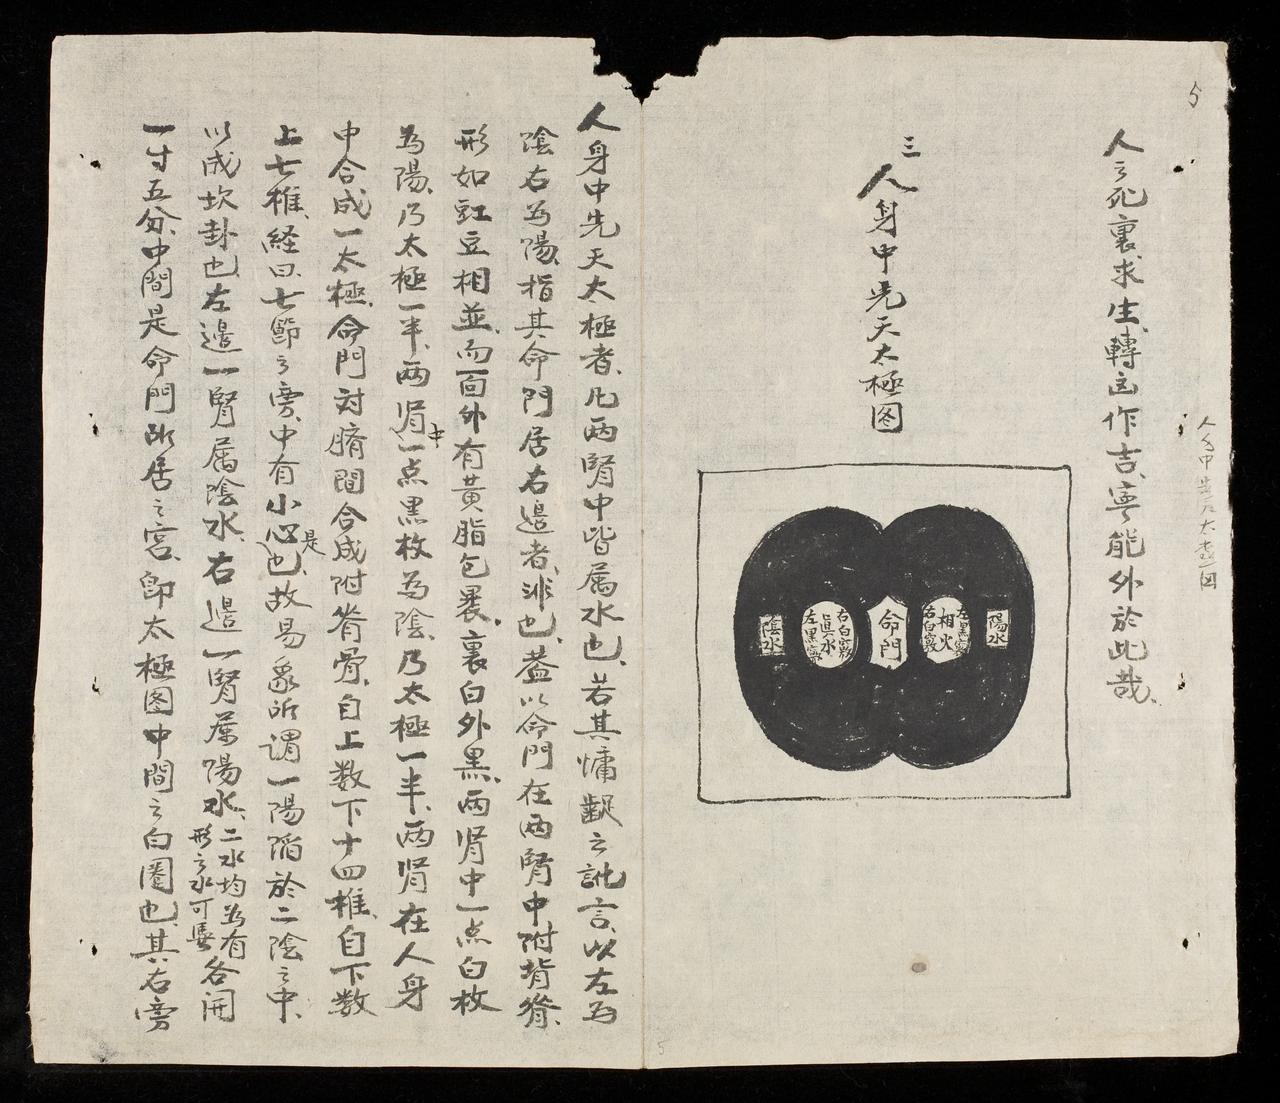 5
人之死裏求生、轉凶作吉、寧能外於此哉、
人身中先天太極図
三
人身中先天太極图
陽水
左黑竅
相火
右白竅
命門
右白竅
真水
左黑竅
陰水
人身中先天太極者、凡両腎中皆属水也、若其慵齪之訛言、以左為
陰右為陽、指其命門居右邉者、非也、蓋以命門在両腎中附背脊、
形如豇豆相並、而一面外有黄脂包褁、裏白外黒、両肾中一点白枚
為陽、乃太極一半、両肾中一点黒枚為陰、乃太極一半、両肾在人身
中合成一太極、命門对臍間合成附脊骨、自上数下十四椎、自下数
上七椎、経曰、七節之旁、中有小心是也、故易彖所謂一陽陷於二陰之中、
以成坎卦也、左邉一腎属陰水、右邉一腎属陽水、二水均為有形之水可⿰ 各開
一寸五分、中間是命門所居之宮、即太極图中間之白圏也、其右旁
5